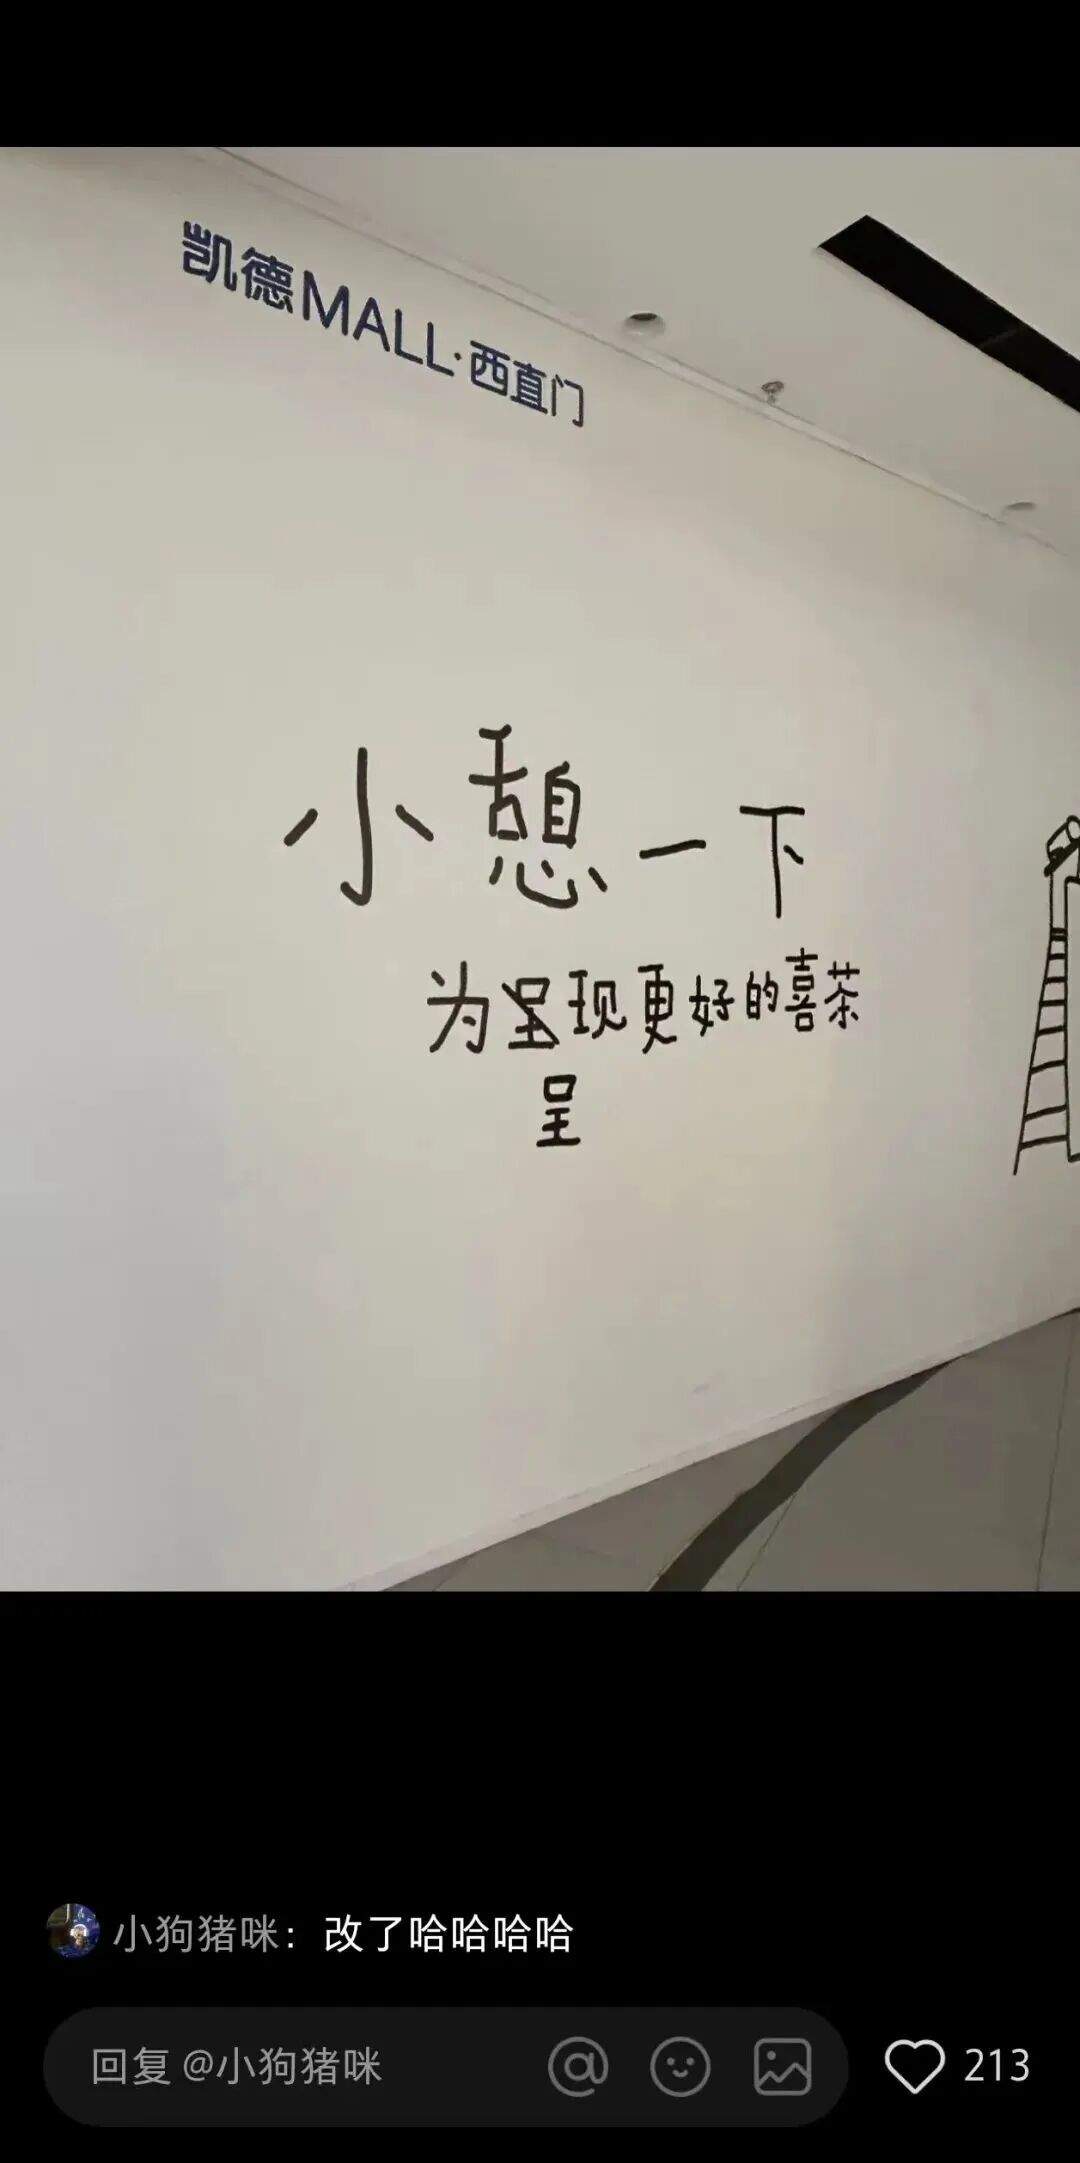 凯德MALL·西直门
小憩一下
为呈现更好的喜茶
呈
小狗猪咪：改了哈哈哈哈
回复 @小狗猪咪
213